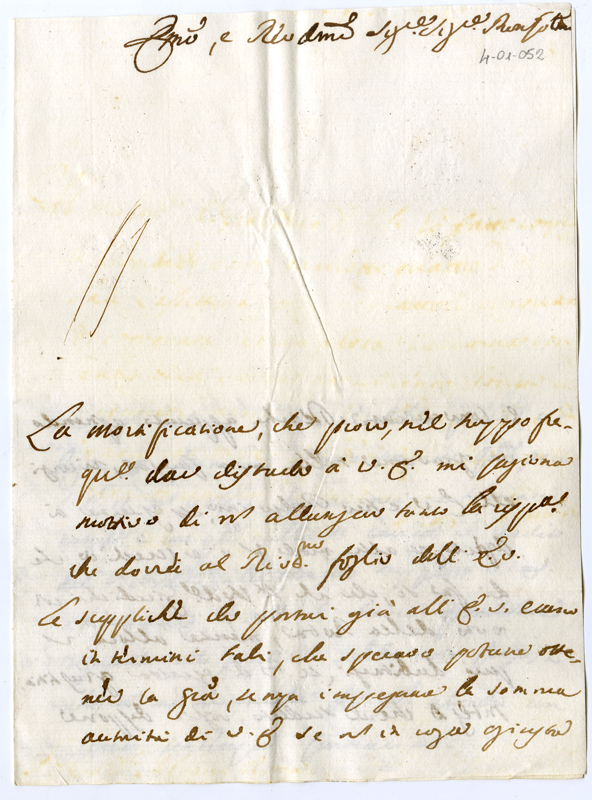 Emo, e Revdmo Sigre Sigre Pron Col
4-01-052
La mortificazione, che provo, nel troppo fre-
que dar disturbo à V. E. mi cagiona
motivo di nō allungar tanto la rispa
che dovrei al Revdmo foglio dell' E. V.
Le suppliche che portai già all' E. V. erano
in termini tali, che speravo poterne otte-
ner la gra, senza impegnare la somma
autorità di V. E. se nō in cosa giusta